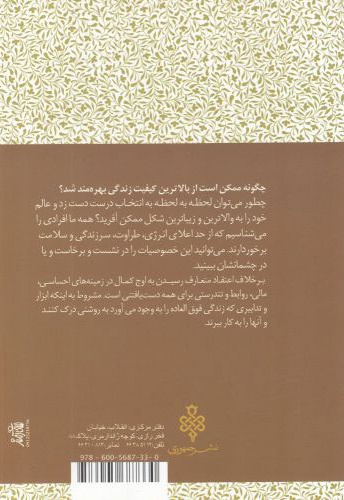 چگونه ممکن است از بالاترین کیفیت زندگی بهره‌مند شد؟
چطور می‌توان لحظه به لحظه به انتخاب درست دست زد و عالم
خود را به والاترین و زیباترین شکل ممکن آفرید؟ همه ما افرادی را
می‌شناسیم که از حد اعلای انرژی، طراوت، سرزندگی و سلامت
برخوردارند. می‌توانید این خصوصیات را در نشست و برخاست و یا
در چشمانشان ببینید.
برخلاف اعتقاد متعارف رسیدن به اوج کمال در زمینه‌های احساسی،
مالی، روابط و تندرستی برای همه دست‌یافتنی است. مشروط به اینکه ابزار
و تدابیری که زندگی فوق العاده را به وجود می‌آورد به روشنی درک کنند
و آنها را به کار ببرند.
نشر جمهوری
دفتر مرکزی: انقلاب، خیابان
فخر رازی، کوچه ژاندارمری، پلاک
تلفن:
نمابر:
978 - 600-5687-33-0